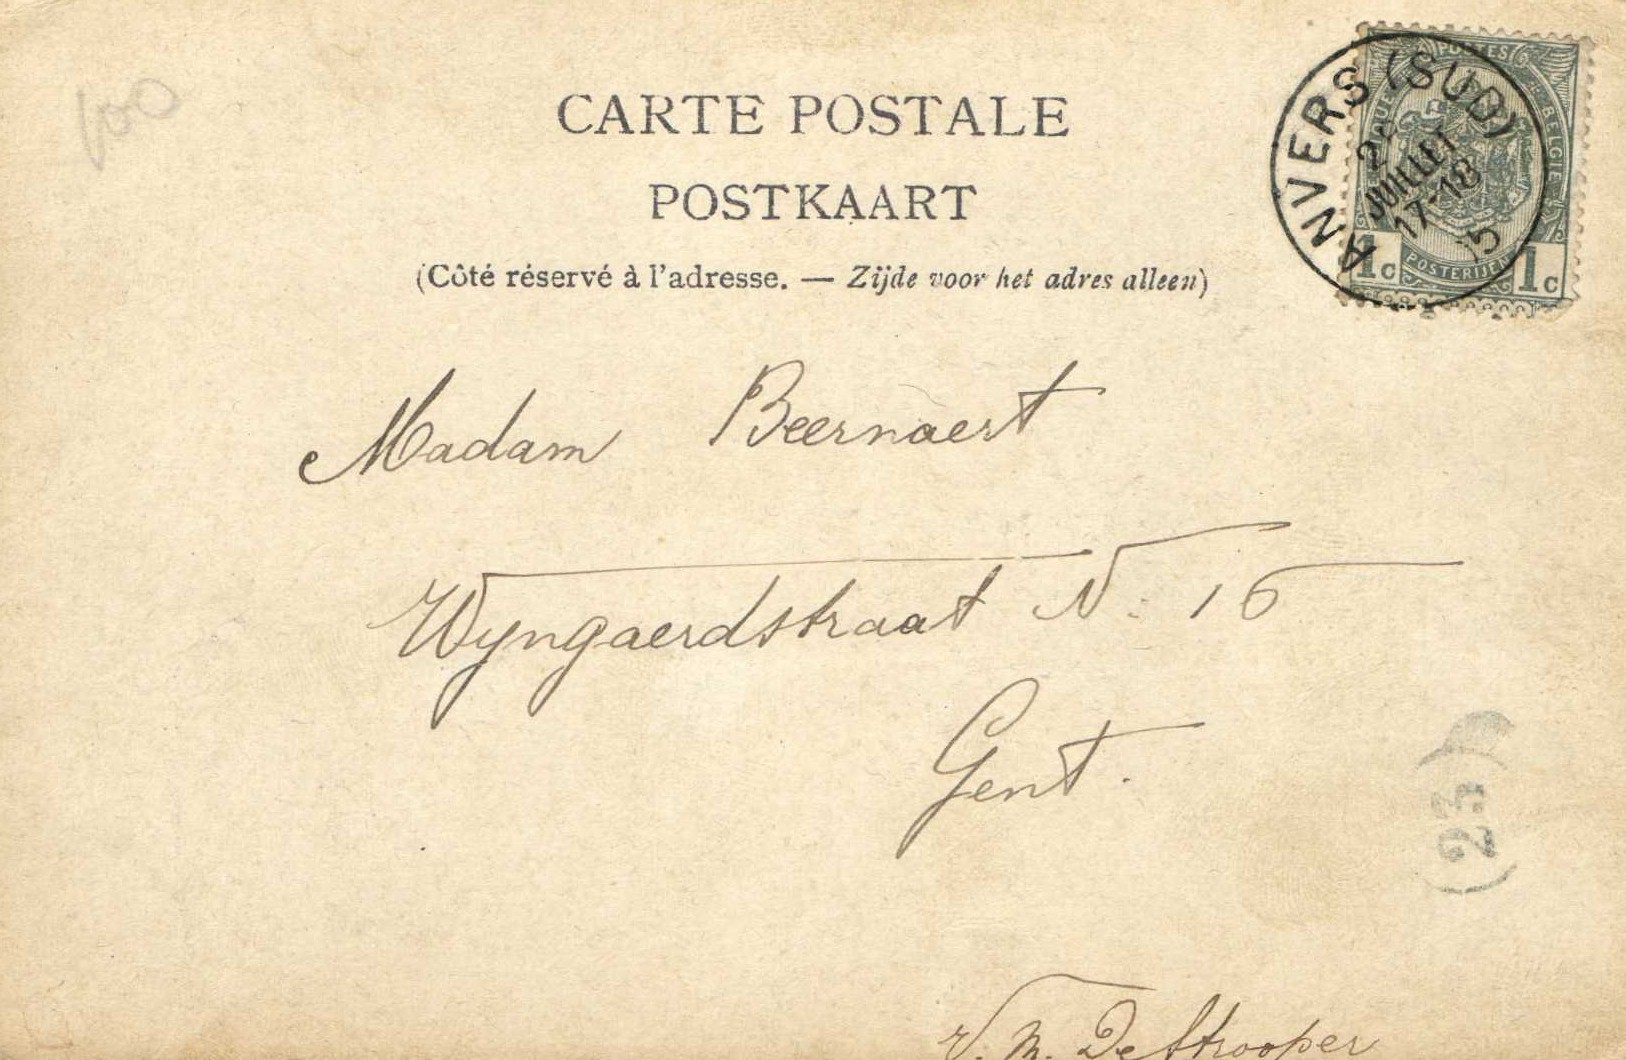 100
CARTE POSTALE
POSTKAART
(Côté réservé à l'adresse. — Zijde voor het adres alleen)
ANVERS (SUD)
JUILLET
17-18
POSTES
BELGIE
1c POSTERIJEN 1c
Madam Beernaert
Wyngaerdstraat N: 16
Gent.
(23)
V. M. DeStrooper